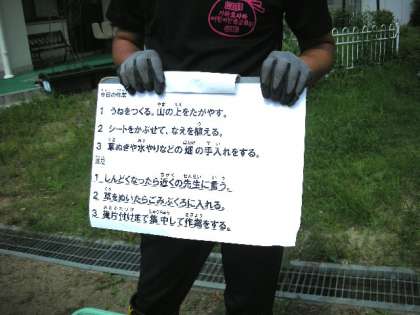 今日の作業
1 うねをつくる。山の上をたがやす。
2 シートをかぶせて、なえを植える。
3 草ぬきや水やりなどの畑の手入れをする。
注意
1 しんどくなったら近くの先生に言う。
2 草をぬいたらごみぶくろに入れる。
3 後片付けまで集中して作業をする。